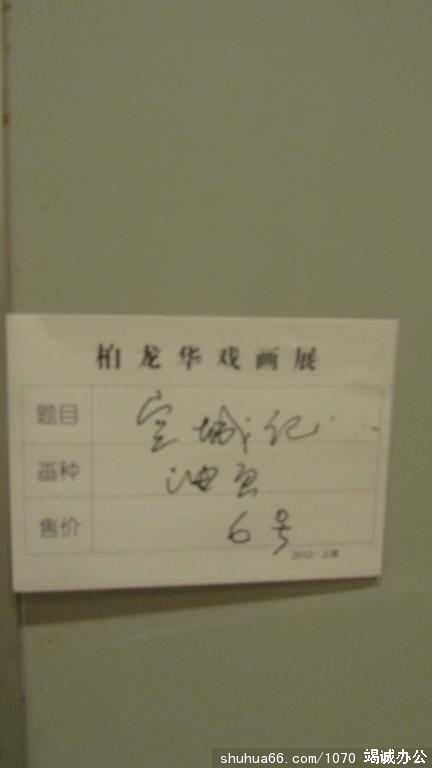 柏龙华戏画展
题目 空城记
画种 油画
售价 6号
2012·上海
shuhua66.com/1070 竭诚办公